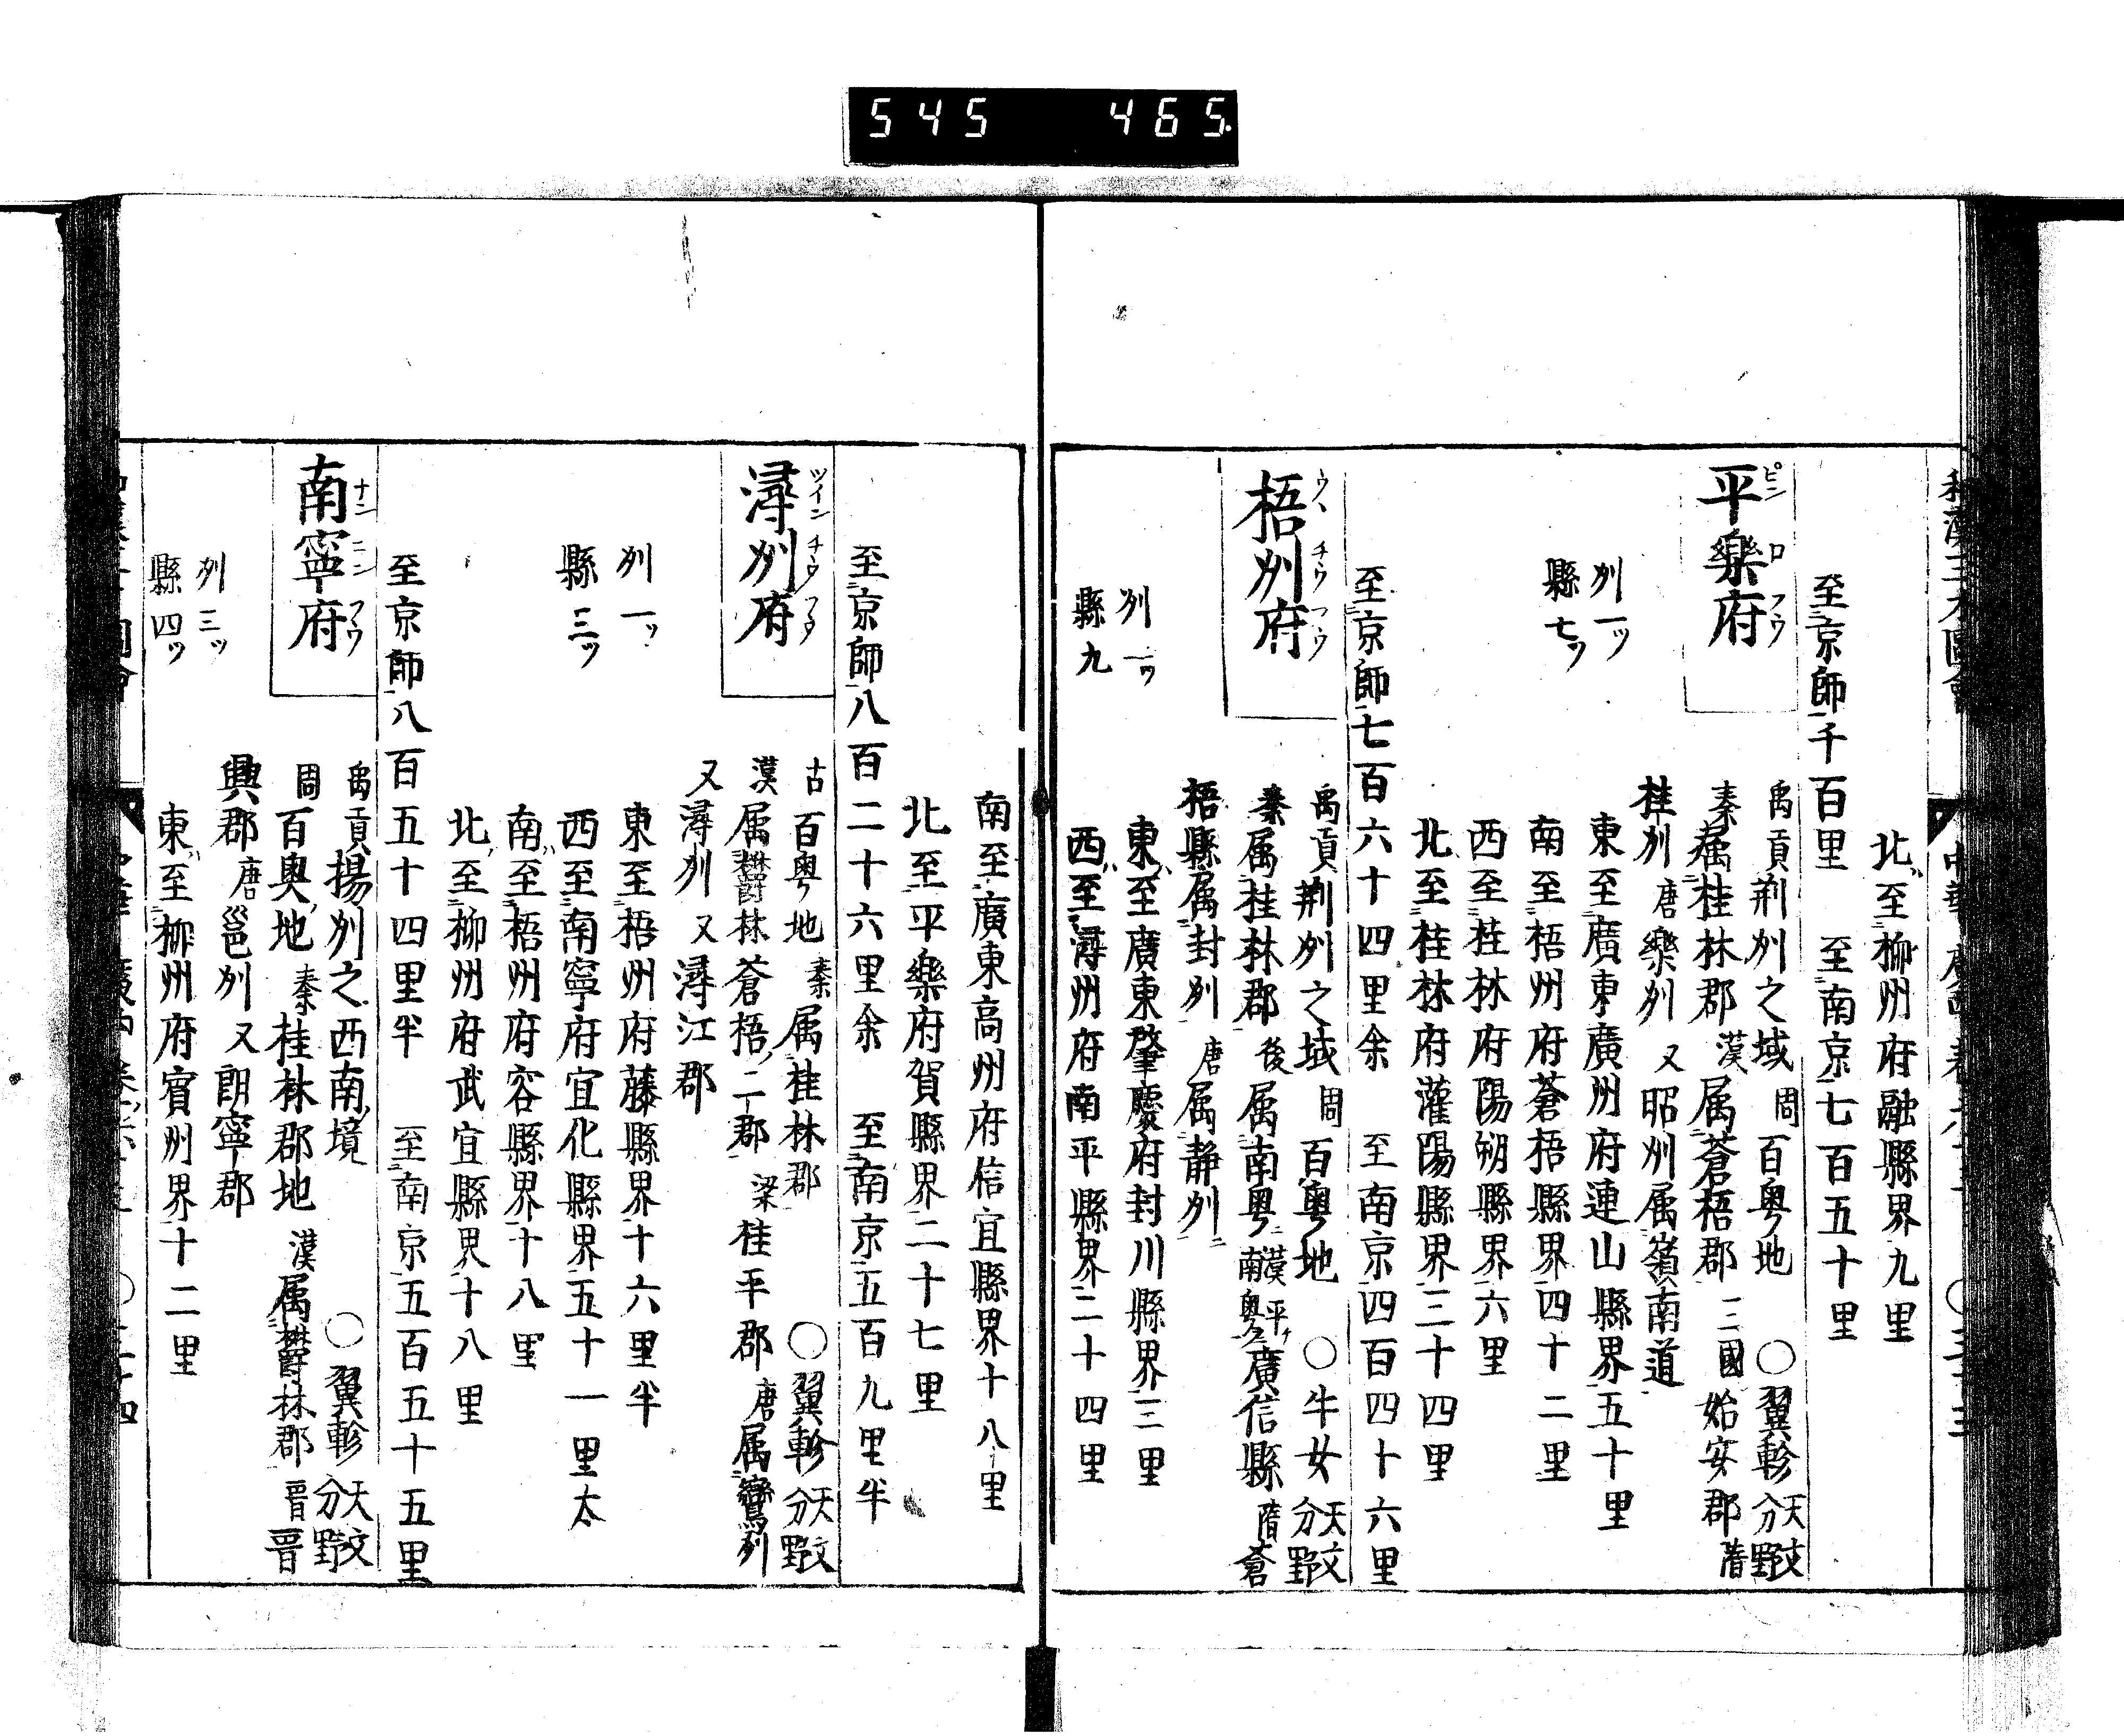 545 465.
北至柳州府融縣界九里
至京師千百里 至南京七百五十里
平樂府 ピン ロ フウ
禹貢荊州之域 周百粤地 〇翼軫天文分野
秦属桂林郡 漢属蒼梧郡 三國始安郡 隋
桂州 唐樂州 又昭州属嶺南道
州一ツ
縣七ツ
東至廣東廣州府連山縣界五十里
南至梧州府蒼梧縣界四十二里
西至桂林府陽朔縣界六里
北至桂林府灌陽縣界三十四里
至京師七百六十四里余 至南京四百四十六里
梧州府 ウヽ チウ フウ
禹貢荊州之域 周百粤地 〇牛女天文分野
秦属桂林郡 後属南粤 漢平南奥為廣信縣 隋蒼
梧縣属封州 唐属静州
州一ツ
縣九
東至廣東肇慶府封川縣界三里
西至潯州府南平縣界二十四里
南至廣東高州府信宜縣界十八里
北至平樂府賀縣界二十七里
至京師八百二十六里余 至南京五百九里半
潯州府 ツイン チウ フウ
古百粤地 秦属桂林郡 〇翼軫天文分野
漢属欝林蒼梧二郡 梁桂平郡 唐属鸞州
又潯州 又潯江郡
州一ツ
縣三ツ
東至梧州府藤縣界十六里半
西至南寧府宜化縣界五十一里太
南至梧州府容縣界十八里
北至柳州府武宜縣界十八里
至京師八百五十四里半 至南京五百五十五里
南寧府 ナン ニン フウ
禹貢揚州之西南境 〇翼軫天文分野
周百奥地 秦桂林郡地 漢属欝林郡 晋晋
興郡 唐邕州 又朗寧郡
州三ツ
縣四ツ
東至柳州府賓州界十二里